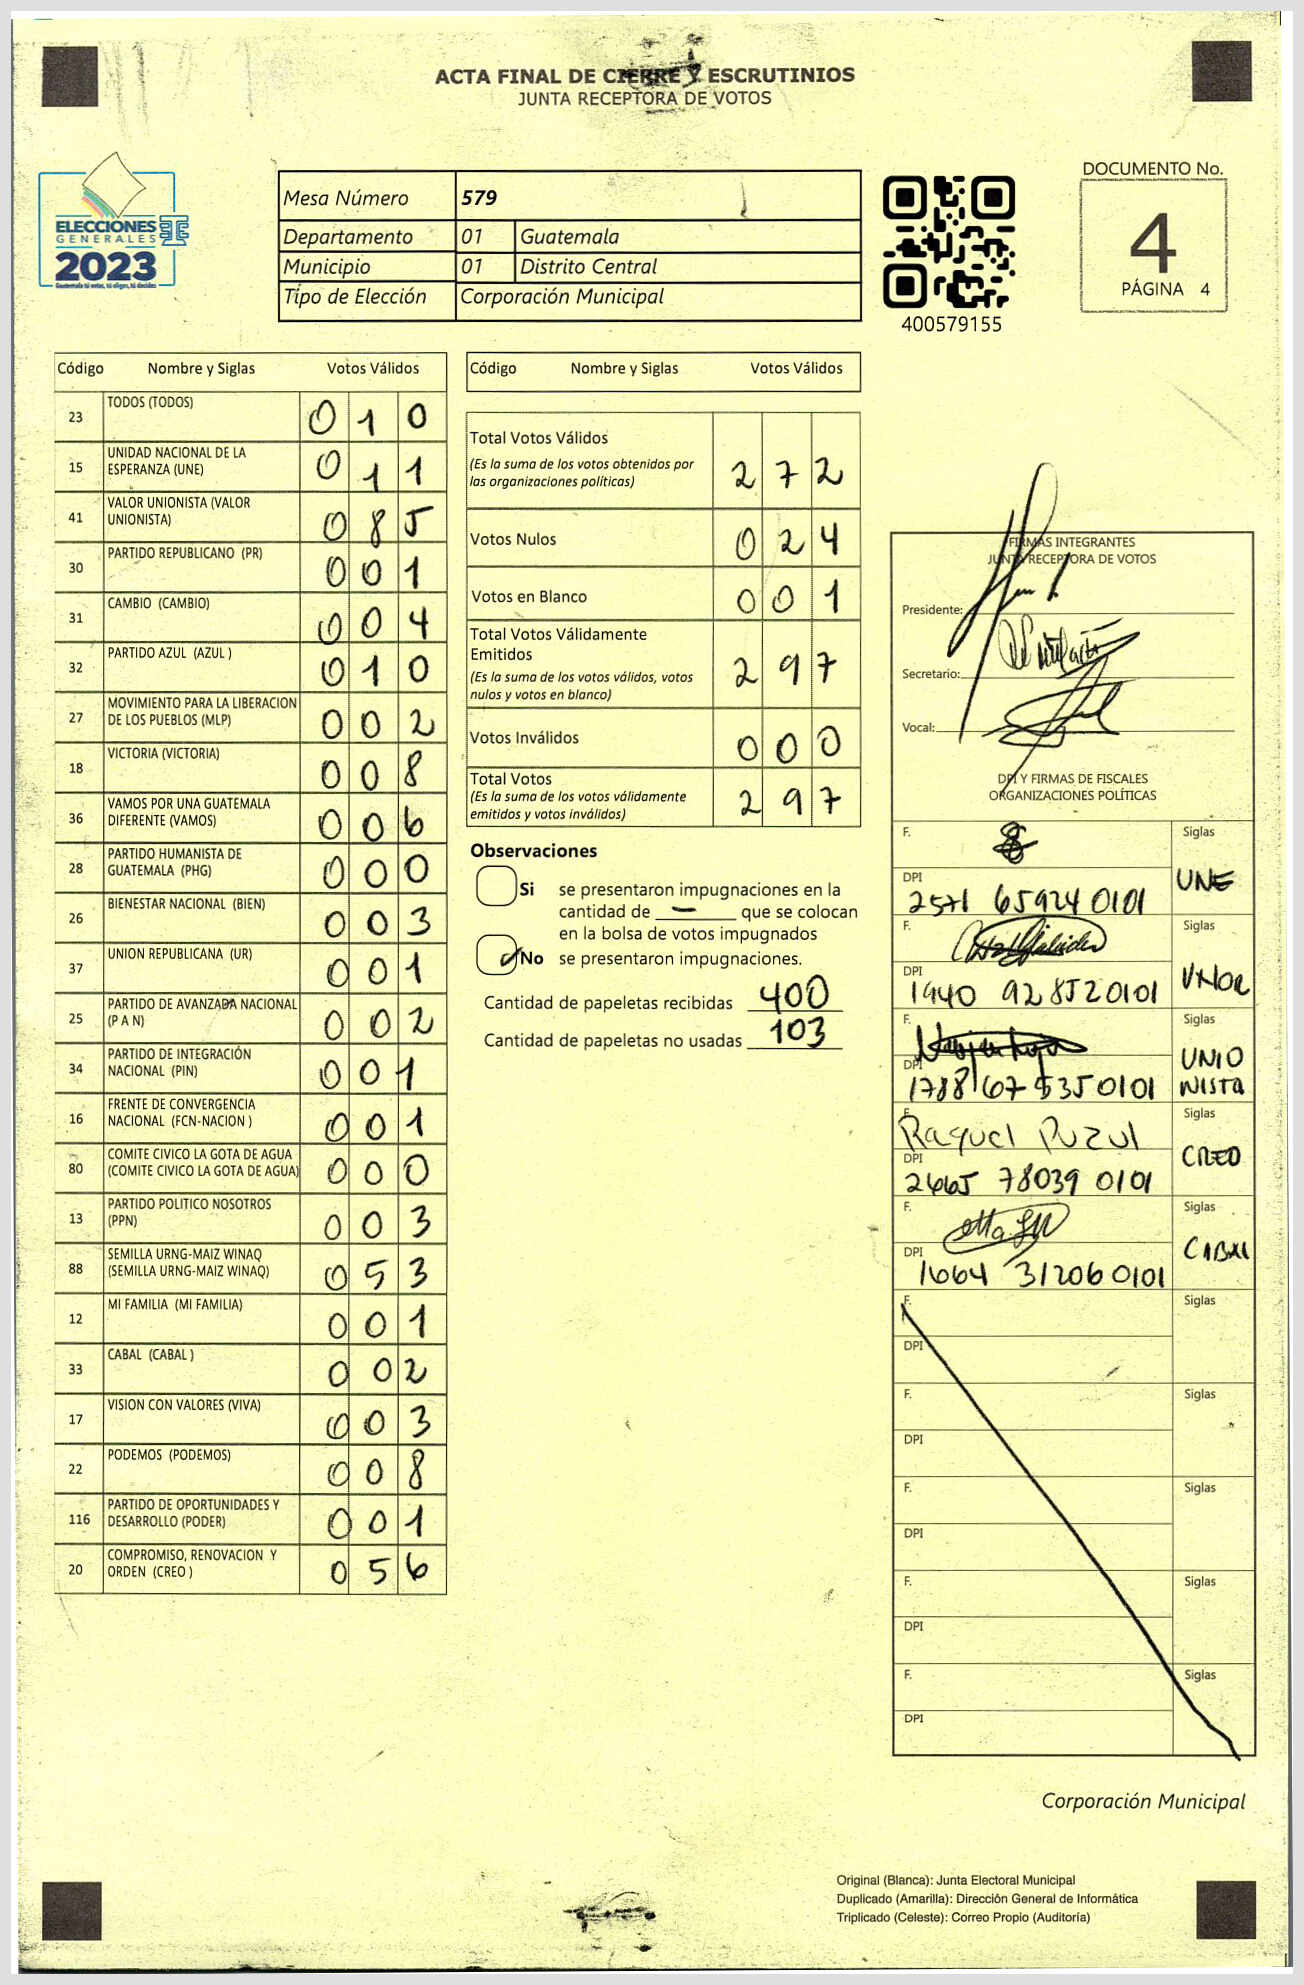 ACTA FINAL DE CIERRE Y ESCRUTINIOS
JUNTA RECEPTORA DE VOTOS
ELECCIONES
GENERALES
2023
Guatemala tú votas, tú eliges, tú decides
Mesa Número 579
Departamento 01 Guatemala
Municipio 01 Distrito Central
Tipo de Elección Corporación Municipal
400579155
DOCUMENTO No.
4
PÁGINA 4
Código Nombre y Siglas Votos Válidos
23 TODOS (TODOS) 0 1 0
15 UNIDAD NACIONAL DE LA ESPERANZA (UNE) 0 1 1
41 VALOR UNIONISTA (VALOR UNIONISTA) 0 8 5
30 PARTIDO REPUBLICANO (PR) 0 0 1
31 CAMBIO (CAMBIO) 0 0 4
32 PARTIDO AZUL (AZUL ) 0 1 0
27 MOVIMIENTO PARA LA LIBERACION DE LOS PUEBLOS (MLP) 0 0 2
18 VICTORIA (VICTORIA) 0 0 8
36 VAMOS POR UNA GUATEMALA DIFERENTE (VAMOS) 0 0 6
28 PARTIDO HUMANISTA DE GUATEMALA (PHG) 0 0 0
26 BIENESTAR NACIONAL (BIEN) 0 0 3
37 UNION REPUBLICANA (UR) 0 0 1
25 PARTIDO DE AVANZADA NACIONAL (P A N) 0 0 2
34 PARTIDO DE INTEGRACIÓN NACIONAL (PIN) 0 0 1
16 FRENTE DE CONVERGENCIA NACIONAL (FCN-NACION ) 0 0 1
80 COMITE CIVICO LA GOTA DE AGUA (COMITE CIVICO LA GOTA DE AGUA) 0 0 0
13 PARTIDO POLITICO NOSOTROS (PPN) 0 0 3
88 SEMILLA URNG-MAIZ WINAQ (SEMILLA URNG-MAIZ WINAQ) 0 5 3
12 MI FAMILIA (MI FAMILIA) 0 0 1
33 CABAL (CABAL ) 0 0 2
17 VISION CON VALORES (VIVA) 0 0 3
22 PODEMOS (PODEMOS) 0 0 8
116 PARTIDO DE OPORTUNIDADES Y DESARROLLO (PODER) 0 0 1
20 COMPROMISO, RENOVACION Y ORDEN (CREO ) 0 5 6
Código Nombre y Siglas Votos Válidos
Total Votos Válidos
(Es la suma de los votos obtenidos por
las organizaciones políticas) 2 7 2
Votos Nulos 0 2 4
Votos en Blanco 0 0 1
Total Votos Válidamente
Emitidos
(Es la suma de los votos válidos, votos
nulos y votos en blanco) 2 9 7
Votos Inválidos 0 0 0
Total Votos
(Es la suma de los votos válidamente
emitidos y votos inválidos) 2 9 7
Observaciones
Si se presentaron impugnaciones en la
cantidad de — que se colocan
en la bolsa de votos impugnados
No se presentaron impugnaciones.
Cantidad de papeletas recibidas 400
Cantidad de papeletas no usadas 103
FIRMAS INTEGRANTES
JUNTA RECEPTORA DE VOTOS
Presidente:
Secretario:
Vocal:
DPI Y FIRMAS DE FISCALES
ORGANIZACIONES POLÍTICAS
F. Siglas
UNE
DPI
2571 65924 0101
F. Siglas
VALOR
DPI
1940 92852 0101
F. Siglas
UNIO
NISTA
DPI
1788 67535 0101
F. Siglas
Raquel Puzul
CREO
DPI
2665 78039 0101
F. Siglas
CABAL
DPI
1664 31206 0101
F. Siglas
DPI
F. Siglas
DPI
F. Siglas
DPI
F. Siglas
DPI
F. Siglas
DPI
Corporación Municipal
Original (Blanca): Junta Electoral Municipal
Duplicado (Amarilla): Dirección General de Informática
Triplicado (Celeste): Correo Propio (Auditoría)